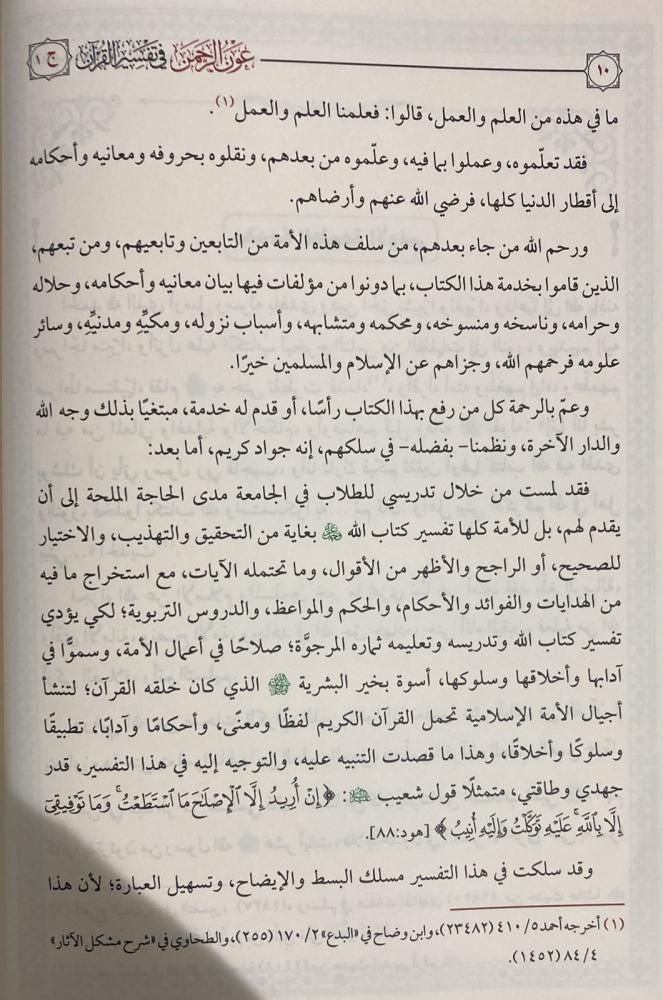 ١٠
عون الرحمن في تفسير القرآن
ج ١
ما في هذه من العلم والعمل، قالوا: فعلمنا العلم والعمل(١).
فقد تعلّموه، وعملوا بما فيه، وعلّموه من بعدهم، ونقلوه بحروفه ومعانيه وأحكامه
إلى أقطار الدنيا كلها، فرضي الله عنهم وأرضاهم.
ورحم الله من جاء بعدهم، من سلف هذه الأمة من التابعين وتابعيهم، ومن تبعهم،
الذين قاموا بخدمة هذا الكتاب، بما دونوا من مؤلفات فيها بيان معانيه وأحكامه، وحلاله
وحرامه، وناسخه ومنسوخه، ومحكمه ومتشابهه، وأسباب نزوله، ومكيِّه ومدنيِّه، وسائر
علومه فرحمهم الله، وجزاهم عن الإسلام والمسلمين خيرًا.
وعمّ بالرحمة كل من رفع بهذا الكتاب رأسًا، أو قدم له خدمة، مبتغيًا بذلك وجه الله
والدار الآخرة، ونظمنا- بفضله- في سلكهم، إنه جواد كريم، أما بعد:
فقد لمست من خلال تدريسي للطلاب في الجامعة مدى الحاجة الملحة إلى أن
يقدم لهم، بل للأمة كلها تفسير كتاب الله بغاية من التحقيق والتهذيب، والاختيار
للصحيح، أو الراجح والأظهر من الأقوال، وما تحتمله الآيات، مع استخراج ما فيه
من الهدايات والفوائد والأحكام، والحكم والمواعظ، والدروس التربوية؛ لكي يؤدي
تفسير كتاب الله وتدريسه وتعليمه ثماره المرجوَّة؛ صلاحًا في أعمال الأمة، وسموًّا في
آدابها وأخلاقها وسلوكها، أسوة بخير البشرية ﷺ الذي كان خلقه القرآن؛ لتنشأ
أجيال الأمة الإسلامية تحمل القرآن الكريم لفظًا ومعنًى، وأحكامًا وآدابًا، تطبيقًا
وسلوكًا وأخلاقًا، وهذا ما قصدت التنبيه عليه، والتوجيه إليه في هذا التفسير، قدر
جهدي وطاقتي، متمثلًا قول شعيب : ﴿إِنْ أُرِيدُ إِلَّا ٱلْإِصْلَٰحَ مَا ٱسْتَطَعْتُ ۚ وَمَا تَوْفِيقِىٓ
إِلَّا بِٱللَّهِ ۚ عَلَيْهِ تَوَكَّلْتُ وَإِلَيْهِ أُنِيبُ﴾ [هود:٨٨].
وقد سلكت في هذا التفسير مسلك البسط والإيضاح، وتسهيل العبارة؛ لأن هذا
(١) أخرجه أحمد ٥/ ٤١٠ (٢٣٤٨٢)، وابن وضاح في «البدع» ٢/ ١٧٠ (٢٥٥)، والطحاوي في «شرح مشكل الآثار»
٤/ ٨٤ (١٤٥٢).